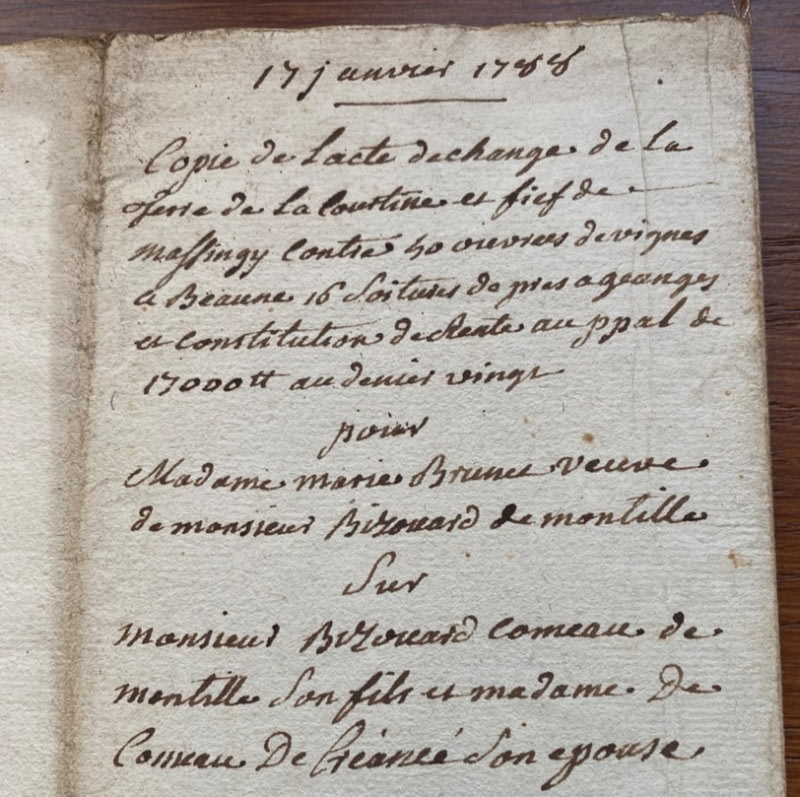 17 janvier 1788
Copie de Lacte dechange de La
Terre de La Courtine et fief de
Massingy Contre 50 ouvrées de vignes
a Beaune 16 Soitures de pres a geanges
et Constitution de Rente au ppal de
17000tt au denier vingt
pour
Madame marie Brunet veuve
de monsieur Bizouard de montille
Sur
monsieur Bizouard Comeau de
montille Son fils et madame De
Comeau De Créancé Son epouse